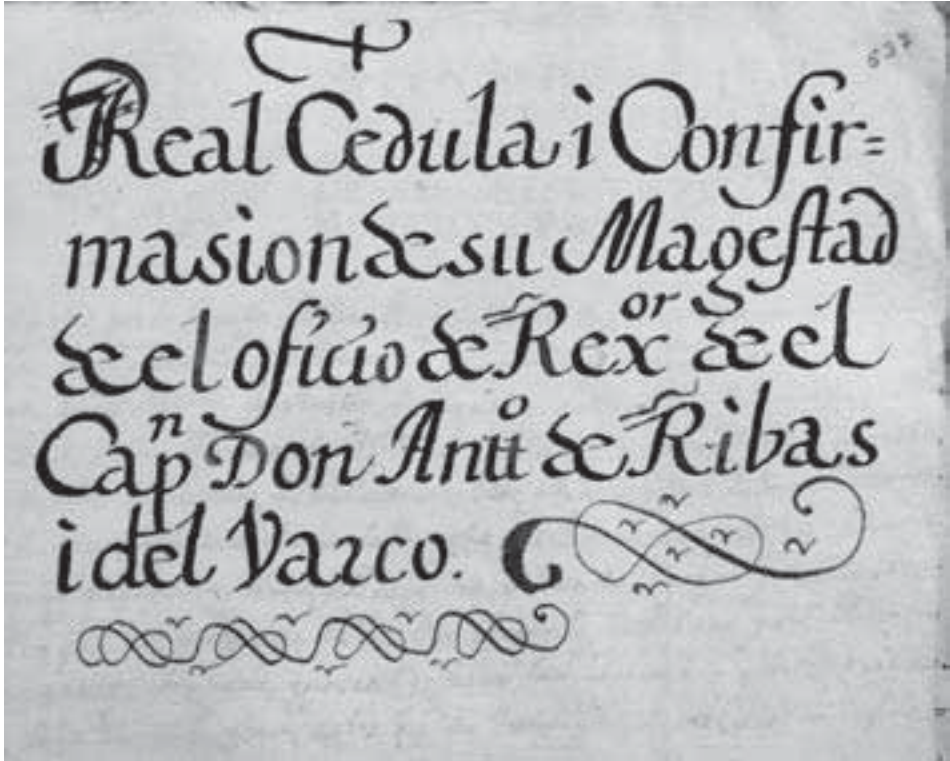 632
Real Cedula i Confir=
masion de su Magestad
de el oficio de Rexor de el
Capn Don Antto de Ribas
i del Varco.